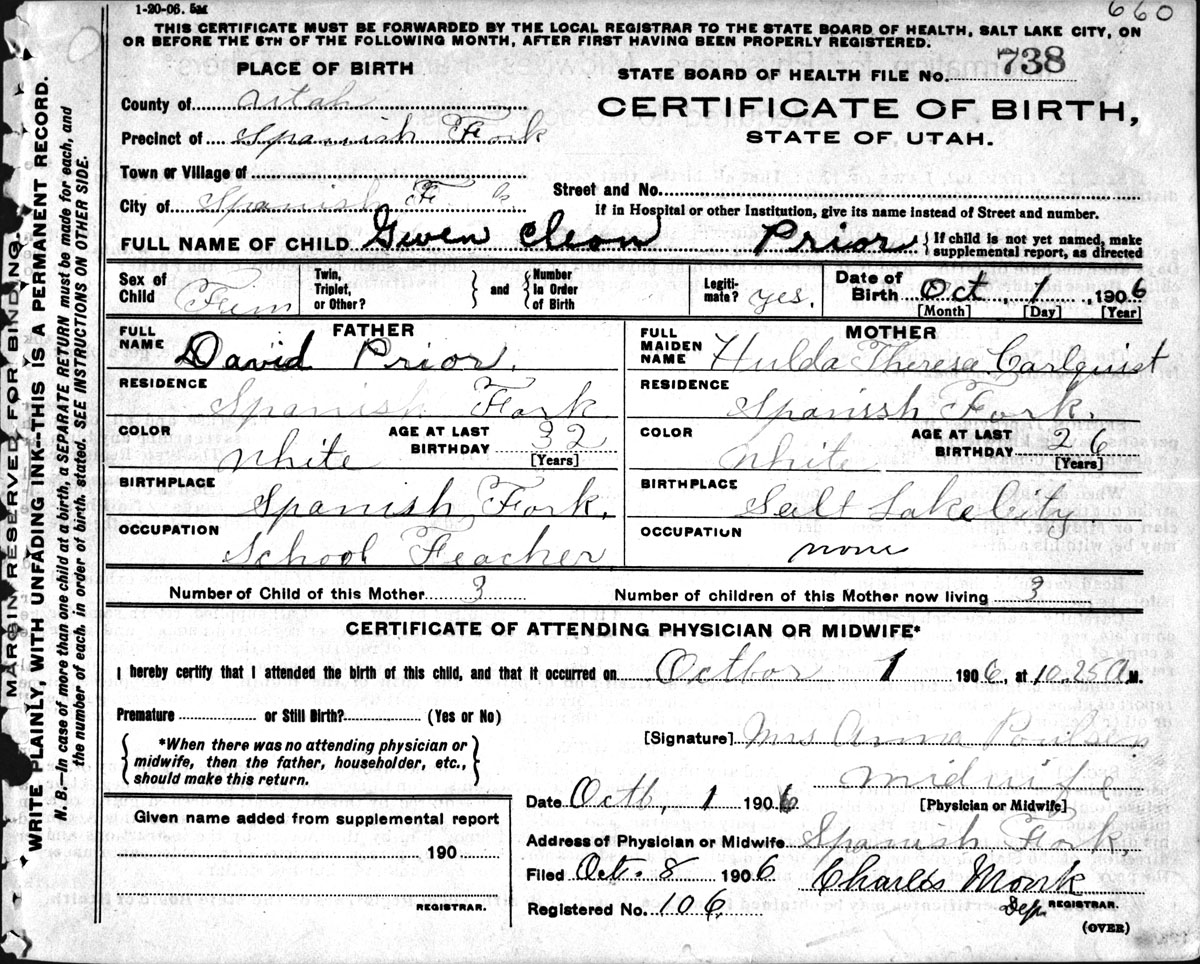 1-20-06. 5M
660
THIS CERTIFICATE MUST BE FORWARDED BY THE LOCAL REGISTRAR TO THE STATE BOARD OF HEALTH, SALT LAKE CITY, ON
OR BEFORE THE 5TH OF THE FOLLOWING MONTH, AFTER FIRST HAVING BEEN PROPERLY REGISTERED.
PLACE OF BIRTH
STATE BOARD OF HEALTH FILE NO. 738
County of Utah
CERTIFICATE OF BIRTH,
Precinct of Spanish Fork
STATE OF UTAH.
Town or Village of
Street and No.
City of Spanish F k
If in Hospital or other Institution, give its name instead of Street and number.
FULL NAME OF CHILD Gwen Cleon Prior { If child is not yet named, make supplemental report, as directed
Sex of Child Fem Twin, Triplet, or Other? } and { Number In Order of Birth Legiti- mate? yes. Date of Birth Oct, 1, 1906
[Month] [Day] [Year]
FATHER
MOTHER
FULL NAME David Prior.
FULL MAIDEN NAME Hulda Theresa Carlquist
RESIDENCE Spanish Fork
RESIDENCE Spanish Fork.
COLOR White AGE AT LAST BIRTHDAY 32 [Years]
COLOR White AGE AT LAST BIRTHDAY 26 [Years]
BIRTHPLACE Spanish Fork.
BIRTHPLACE Salt Lake City
OCCUPATION School Teacher
OCCUPATION none
Number of Child of this Mother 3 Number of children of this Mother now living 3
CERTIFICATE OF ATTENDING PHYSICIAN OR MIDWIFE*
I hereby certify that I attended the birth of this child, and that it occurred on Octbor 1 1906, at 10.25 A M.
Premature or Still Birth? (Yes or No)
*When there was no attending physician or
midwife, then the father, householder, etc.,
should make this return.
[Signature] Mrs Anna Poulsen
midwife
[Physician or Midwife]
Date Octb, 1 1906
Given name added from supplemental report
190
REGISTRAR.
Address of Physician or Midwife Spanish Fork.
Filed Oct. 8 1906 Charles Monk
Registered No. 106. Dep REGISTRAR.
(OVER)
MARGIN RESERVED FOR BINDING.
WRITE PLAINLY, WITH UNFADING INK--THIS IS A PERMANENT RECORD.
N. B.—In case of more than one child at a birth, a SEPARATE RETURN must be made for each, and
the number of each, in order of birth, stated. SEE INSTRUCTIONS ON OTHER SIDE.